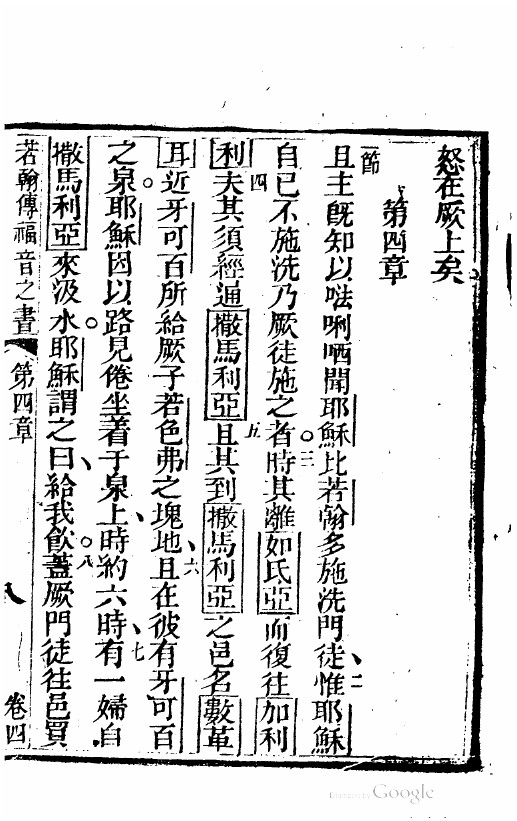 怒在厥上矣
第四章
一節 且主既知以𠵽唎哂聞耶穌比若翰多施洗門徒 二 惟耶穌
自己不施洗乃厥徒施之者。三 時其離如氏亞而復往加利
利 四 夫其須經通撒馬利亞 五 且其到撒馬利亞之邑名數革
耳近牙可百所給厥子若色弗之塊地 六 且在彼有牙可百
之泉。耶穌因以路見倦坐着于泉上時約六時 七 有一婦自
撒馬利亞來汲水。耶穌謂之曰給我飲 八 蓋厥門徒往邑買
若翰傳福音之書 第四章 八 卷四
Digitized by Google